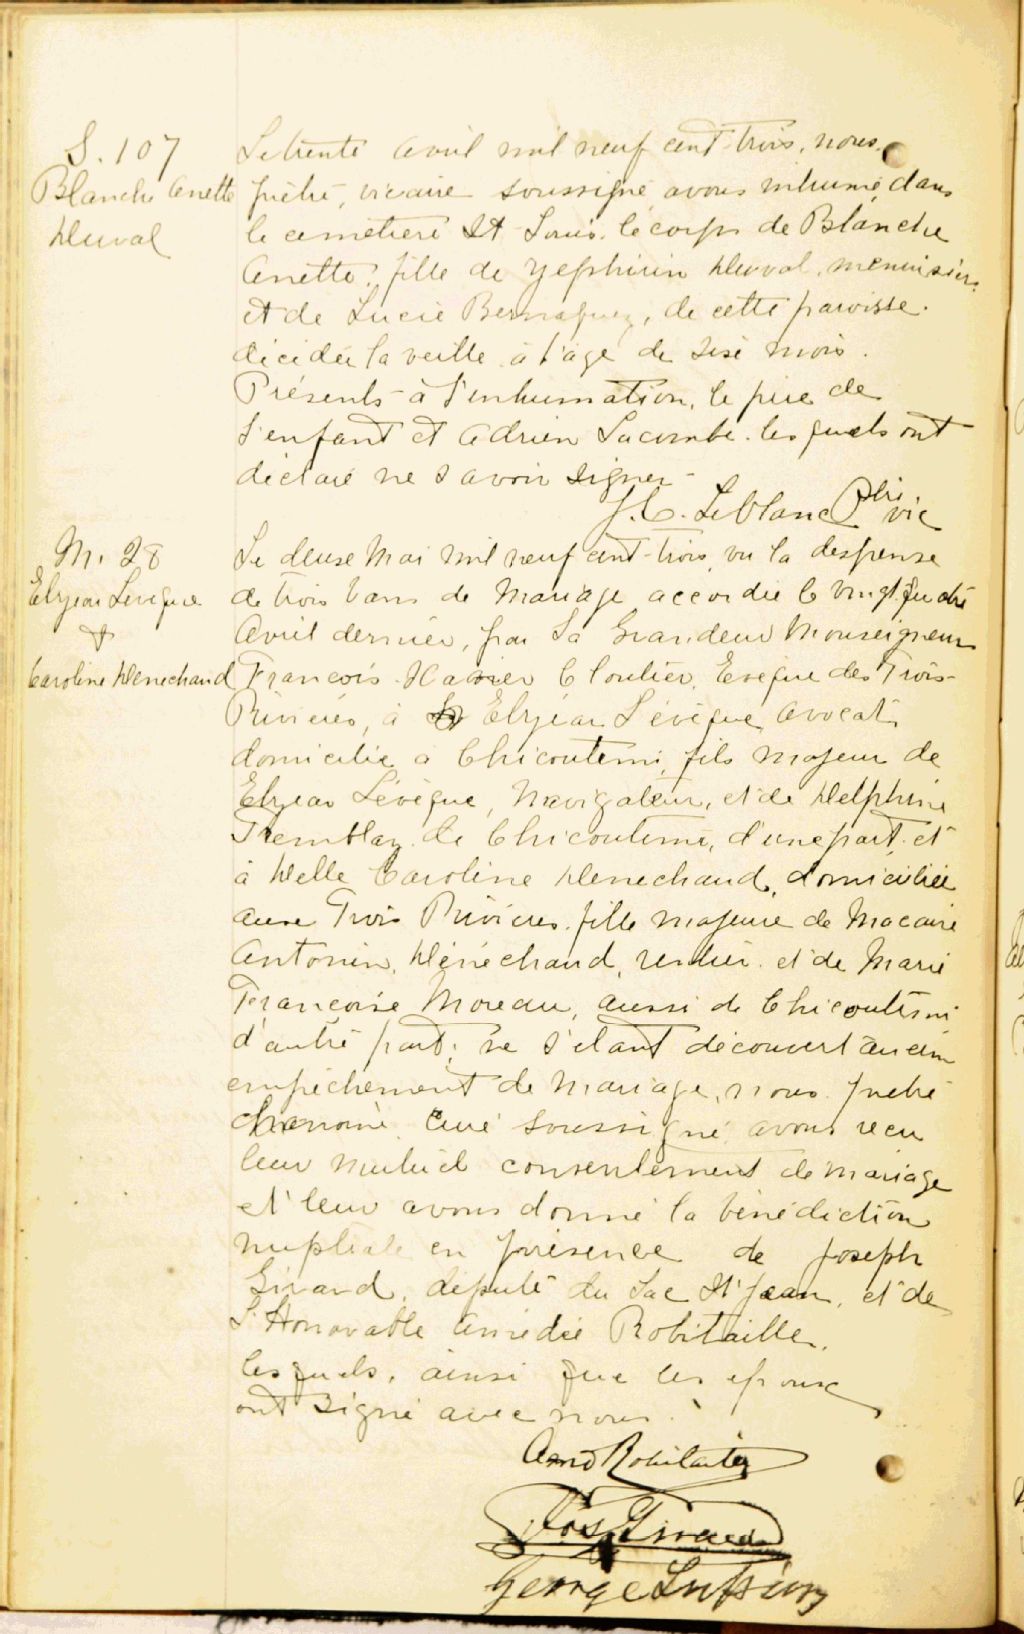 S. 107
Blanche Anette
Duval
Le trente avril mil neuf cent-trois, nous,
prêtre, vicaire soussigné, avons inhumé, dans
le cemetiere St Louis, le corps de Blanche
Anette, fille de Zephirin Duval, menuisier,
et de Lucie Bernaquez, de cette paroisse.
décédée la veille à l'âge de seize mois.
Présents à l'inhumation, le père de
l'enfant et Adrien Lacombe. lesquels ont
déclaré ne savoir signer -
J. C. Leblanc Ptre. vic
M. 28
Elzéar Levêque
&
Caroline Dénéchaud
Le deux Mai mil neuf cent-trois, vu la dispense
de trois bans de Mariage accordée le vingt quatre
Avril dernier, par Sa Grandeur Monseigneur
François-Xavier Cloutier, Evêque des Trois-
Rivières, à Elzéar Lévêque avocat,
domicilié à Chicoutimi, fils majeur de
Elzear Lévêque, Navigateur, et de Delphine
Tremblay de Chicoutimi, d'une part, et
à Delle Caroline Dénéchaud, domiciliée
aux Trois Rivières, fille majeure de Macaire
Antonin, Dénéchaud, rentier, et de Marie
Françoise Moreau, aussi de Chicoutimi
d'autre part; ne s'étant découvert aucun
empêchement de mariage, nous prêtre
chanoine, Curé soussigné, avons reçu
leur mutuel consentement de mariage
et leur avons donné la bénédiction
nuptiale en présence de Joseph
Girard, député du Lac St Jean, et de
L'Honorable Amédée Robitaille,
lesquels, ainsi que les epoux
ont signé avec nous.
Amd Robitaille
Jos Girard
George